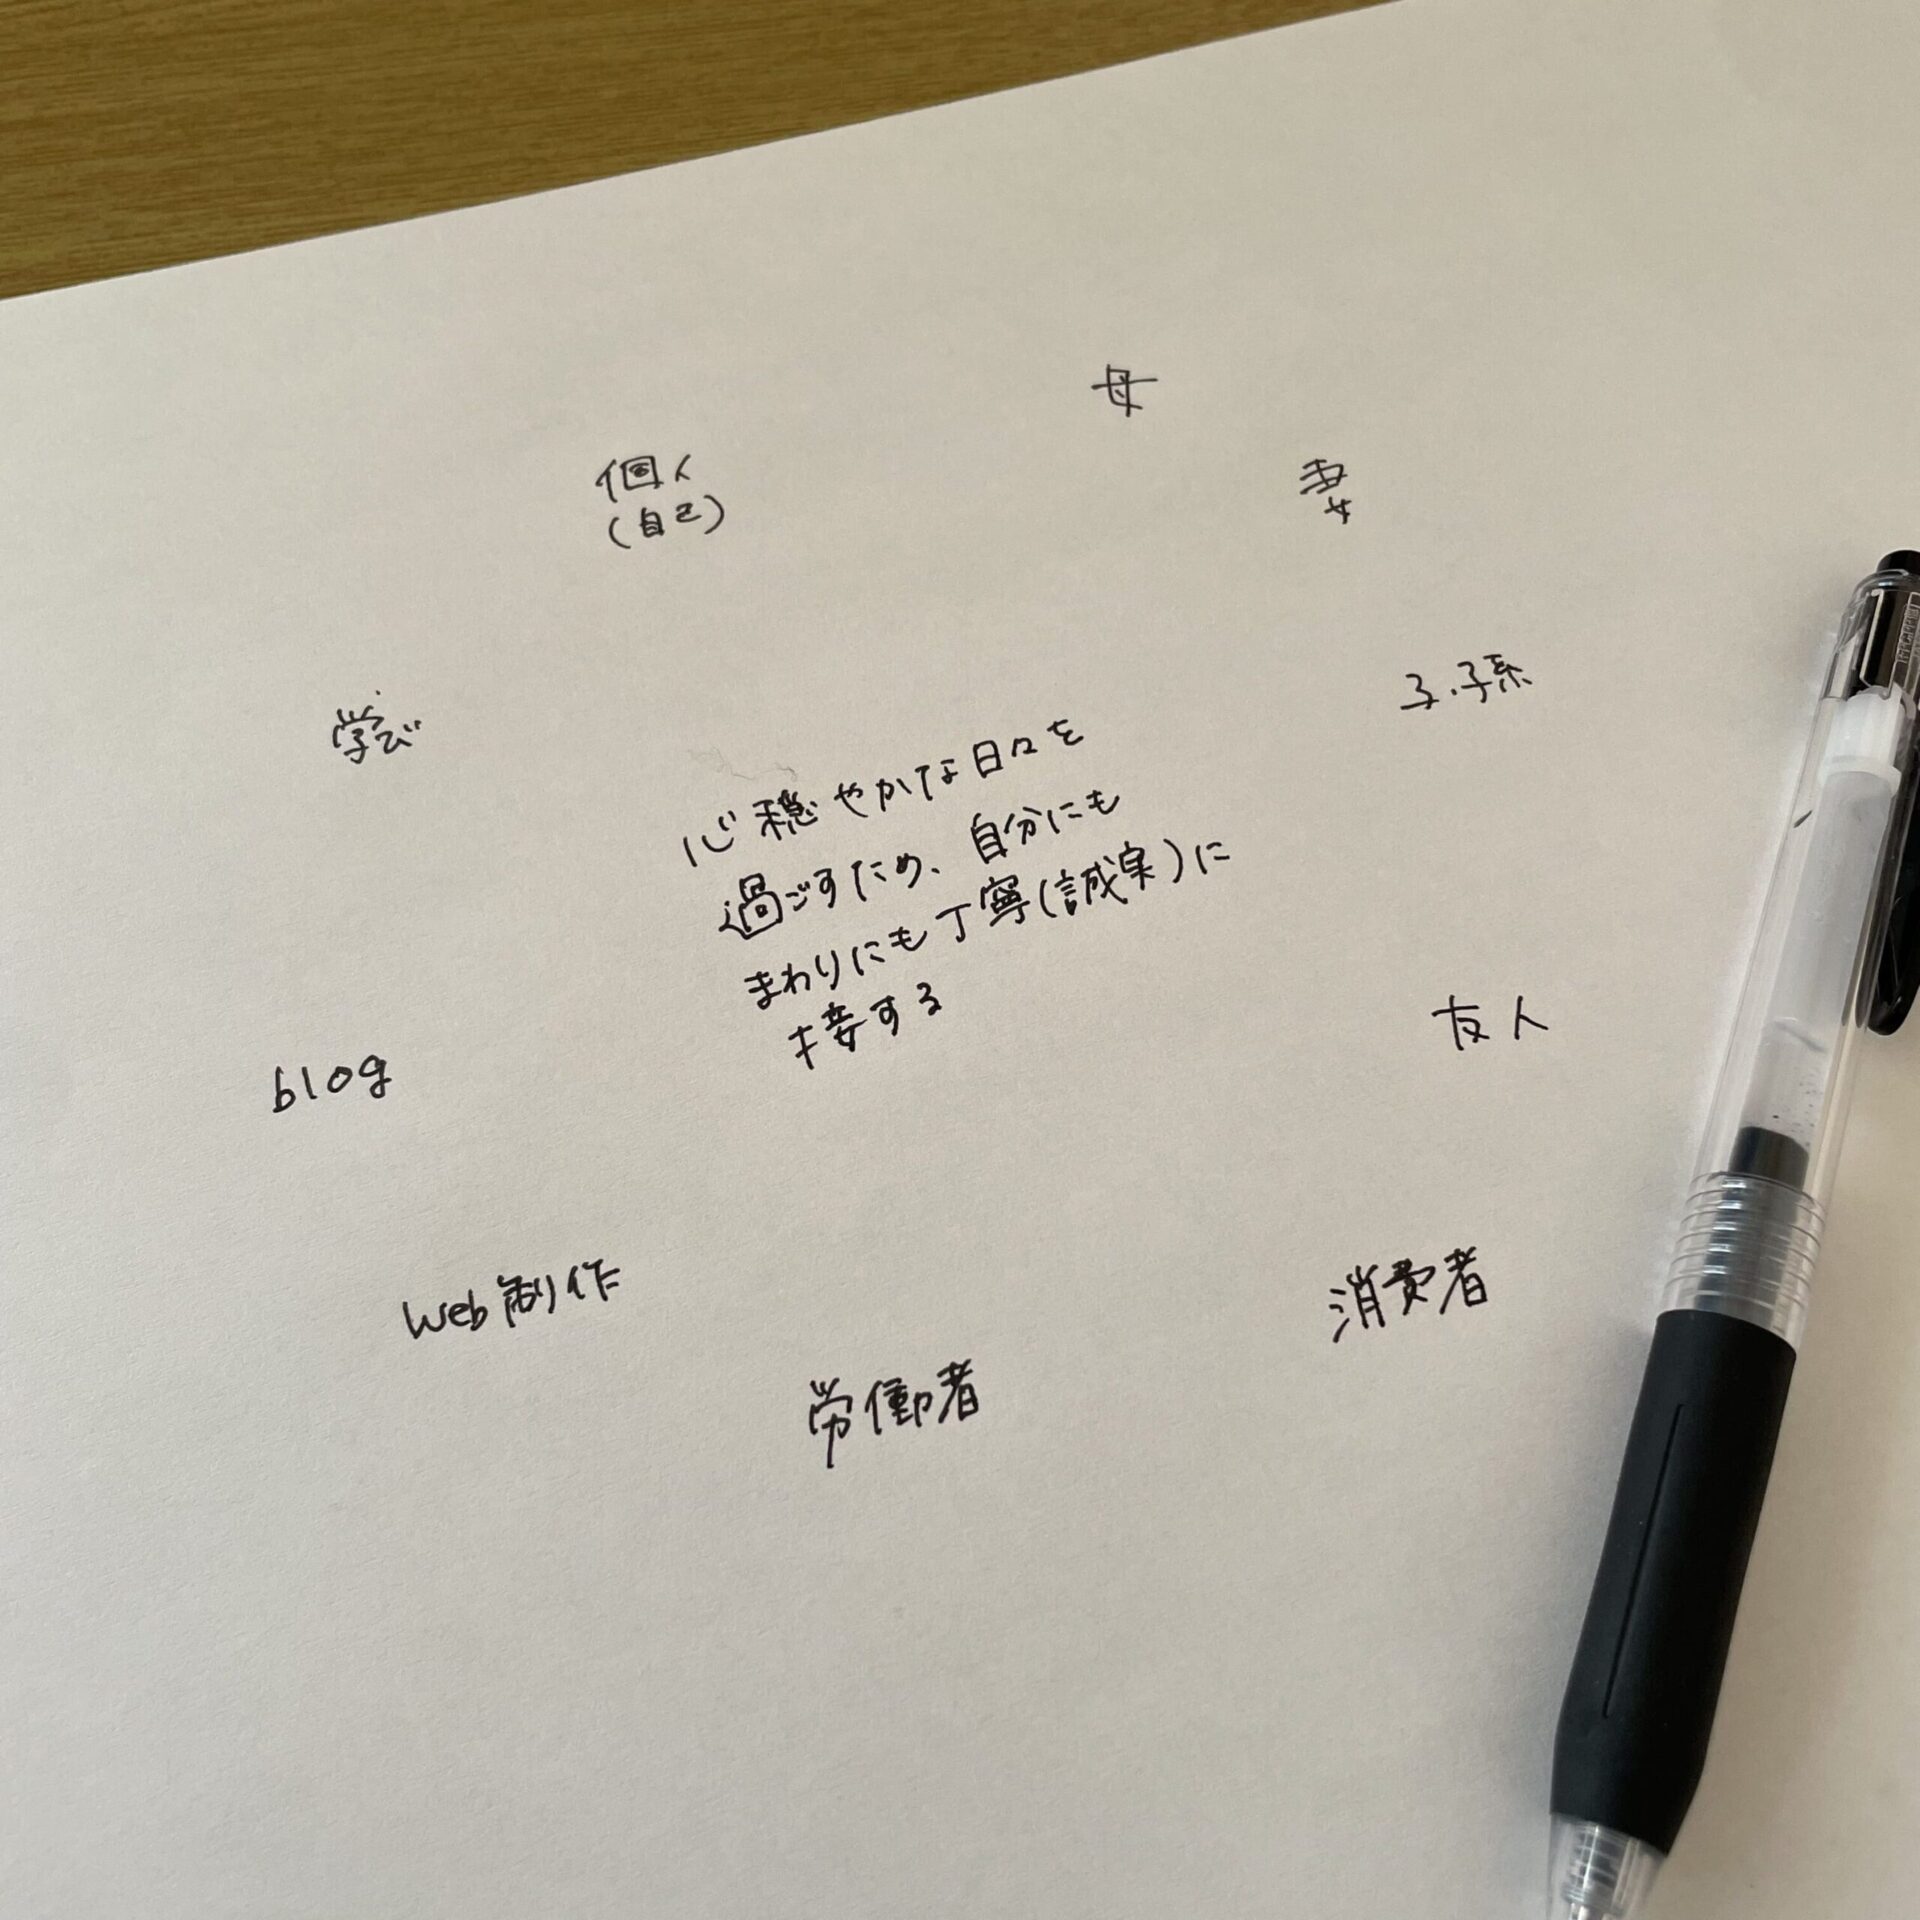 母
個人
(自己)
妻
子・子孫
学び
心穏やかな日々を
過ごすため、自分にも
まわりにも丁寧(誠実)に
接する
友人
blog
web制作
消費者
労働者